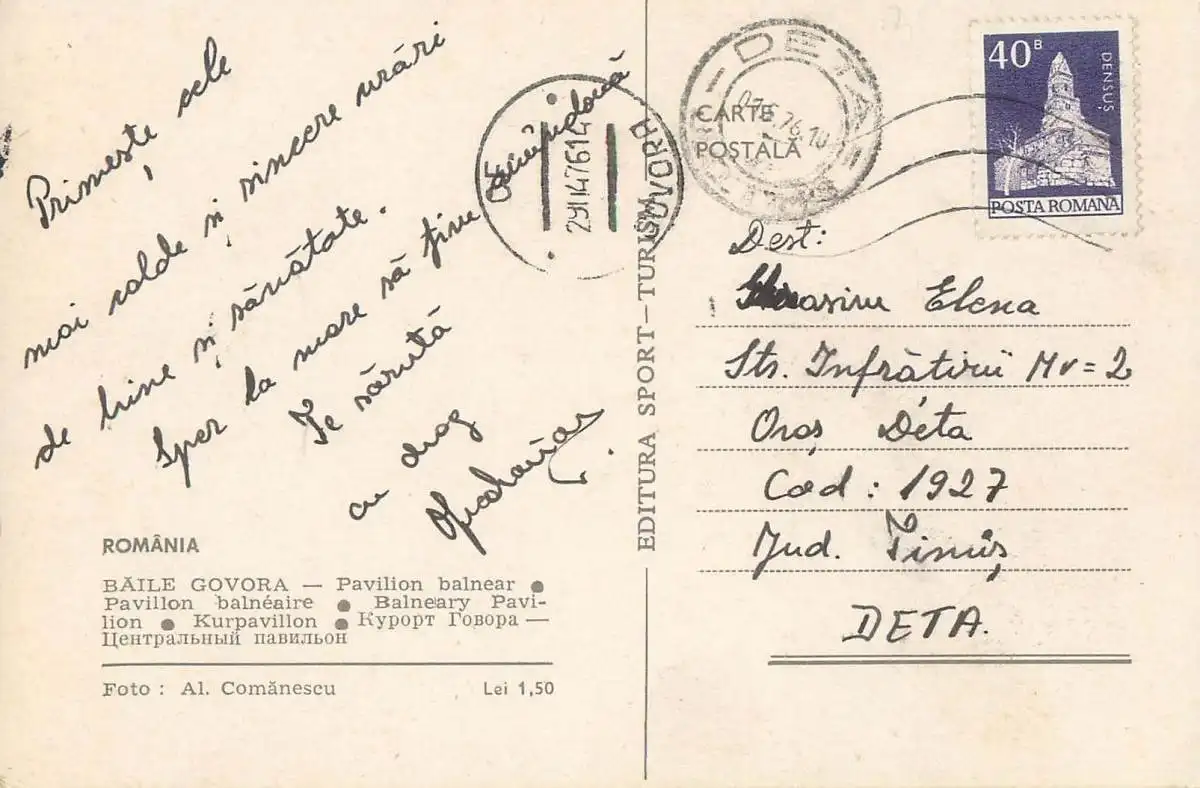 Primește cele
mai calde și sincere urări
de bine și sănătate.
Sper la mare să fim
Te sărută
cu drag
ROMÂNIA
BĂILE GOVORA — Pavilion balnear ●
Pavillon balnéaire ● Balneary Pavi-
lion ● Kurpavillon ● Курорт Говора —
Центральный павильон
Foto : Al. Comănescu
Lei 1,50
EDITURA SPORT—TURISM
GOVORA
DETA
CARTE
POȘTALĂ
40 B
DENSUȘ
POSTA ROMANA
Dest:
Elena
Str. Înfrățirii Nr = 2
Oraș Deta
Cod : 1927
Jud. Timiș
DETA.